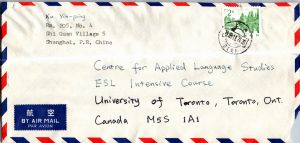 Ku Yen-ping
Rm. 205, No. 4
Shi Quan Village 5
Shanghai, P.R. China
Centre for Applied Language Studies
ESL Intensive Course
University of Toronto, Toronto, Ont.
Canada M5S 1A1
航空
BY AIR MAIL
PAR AVION